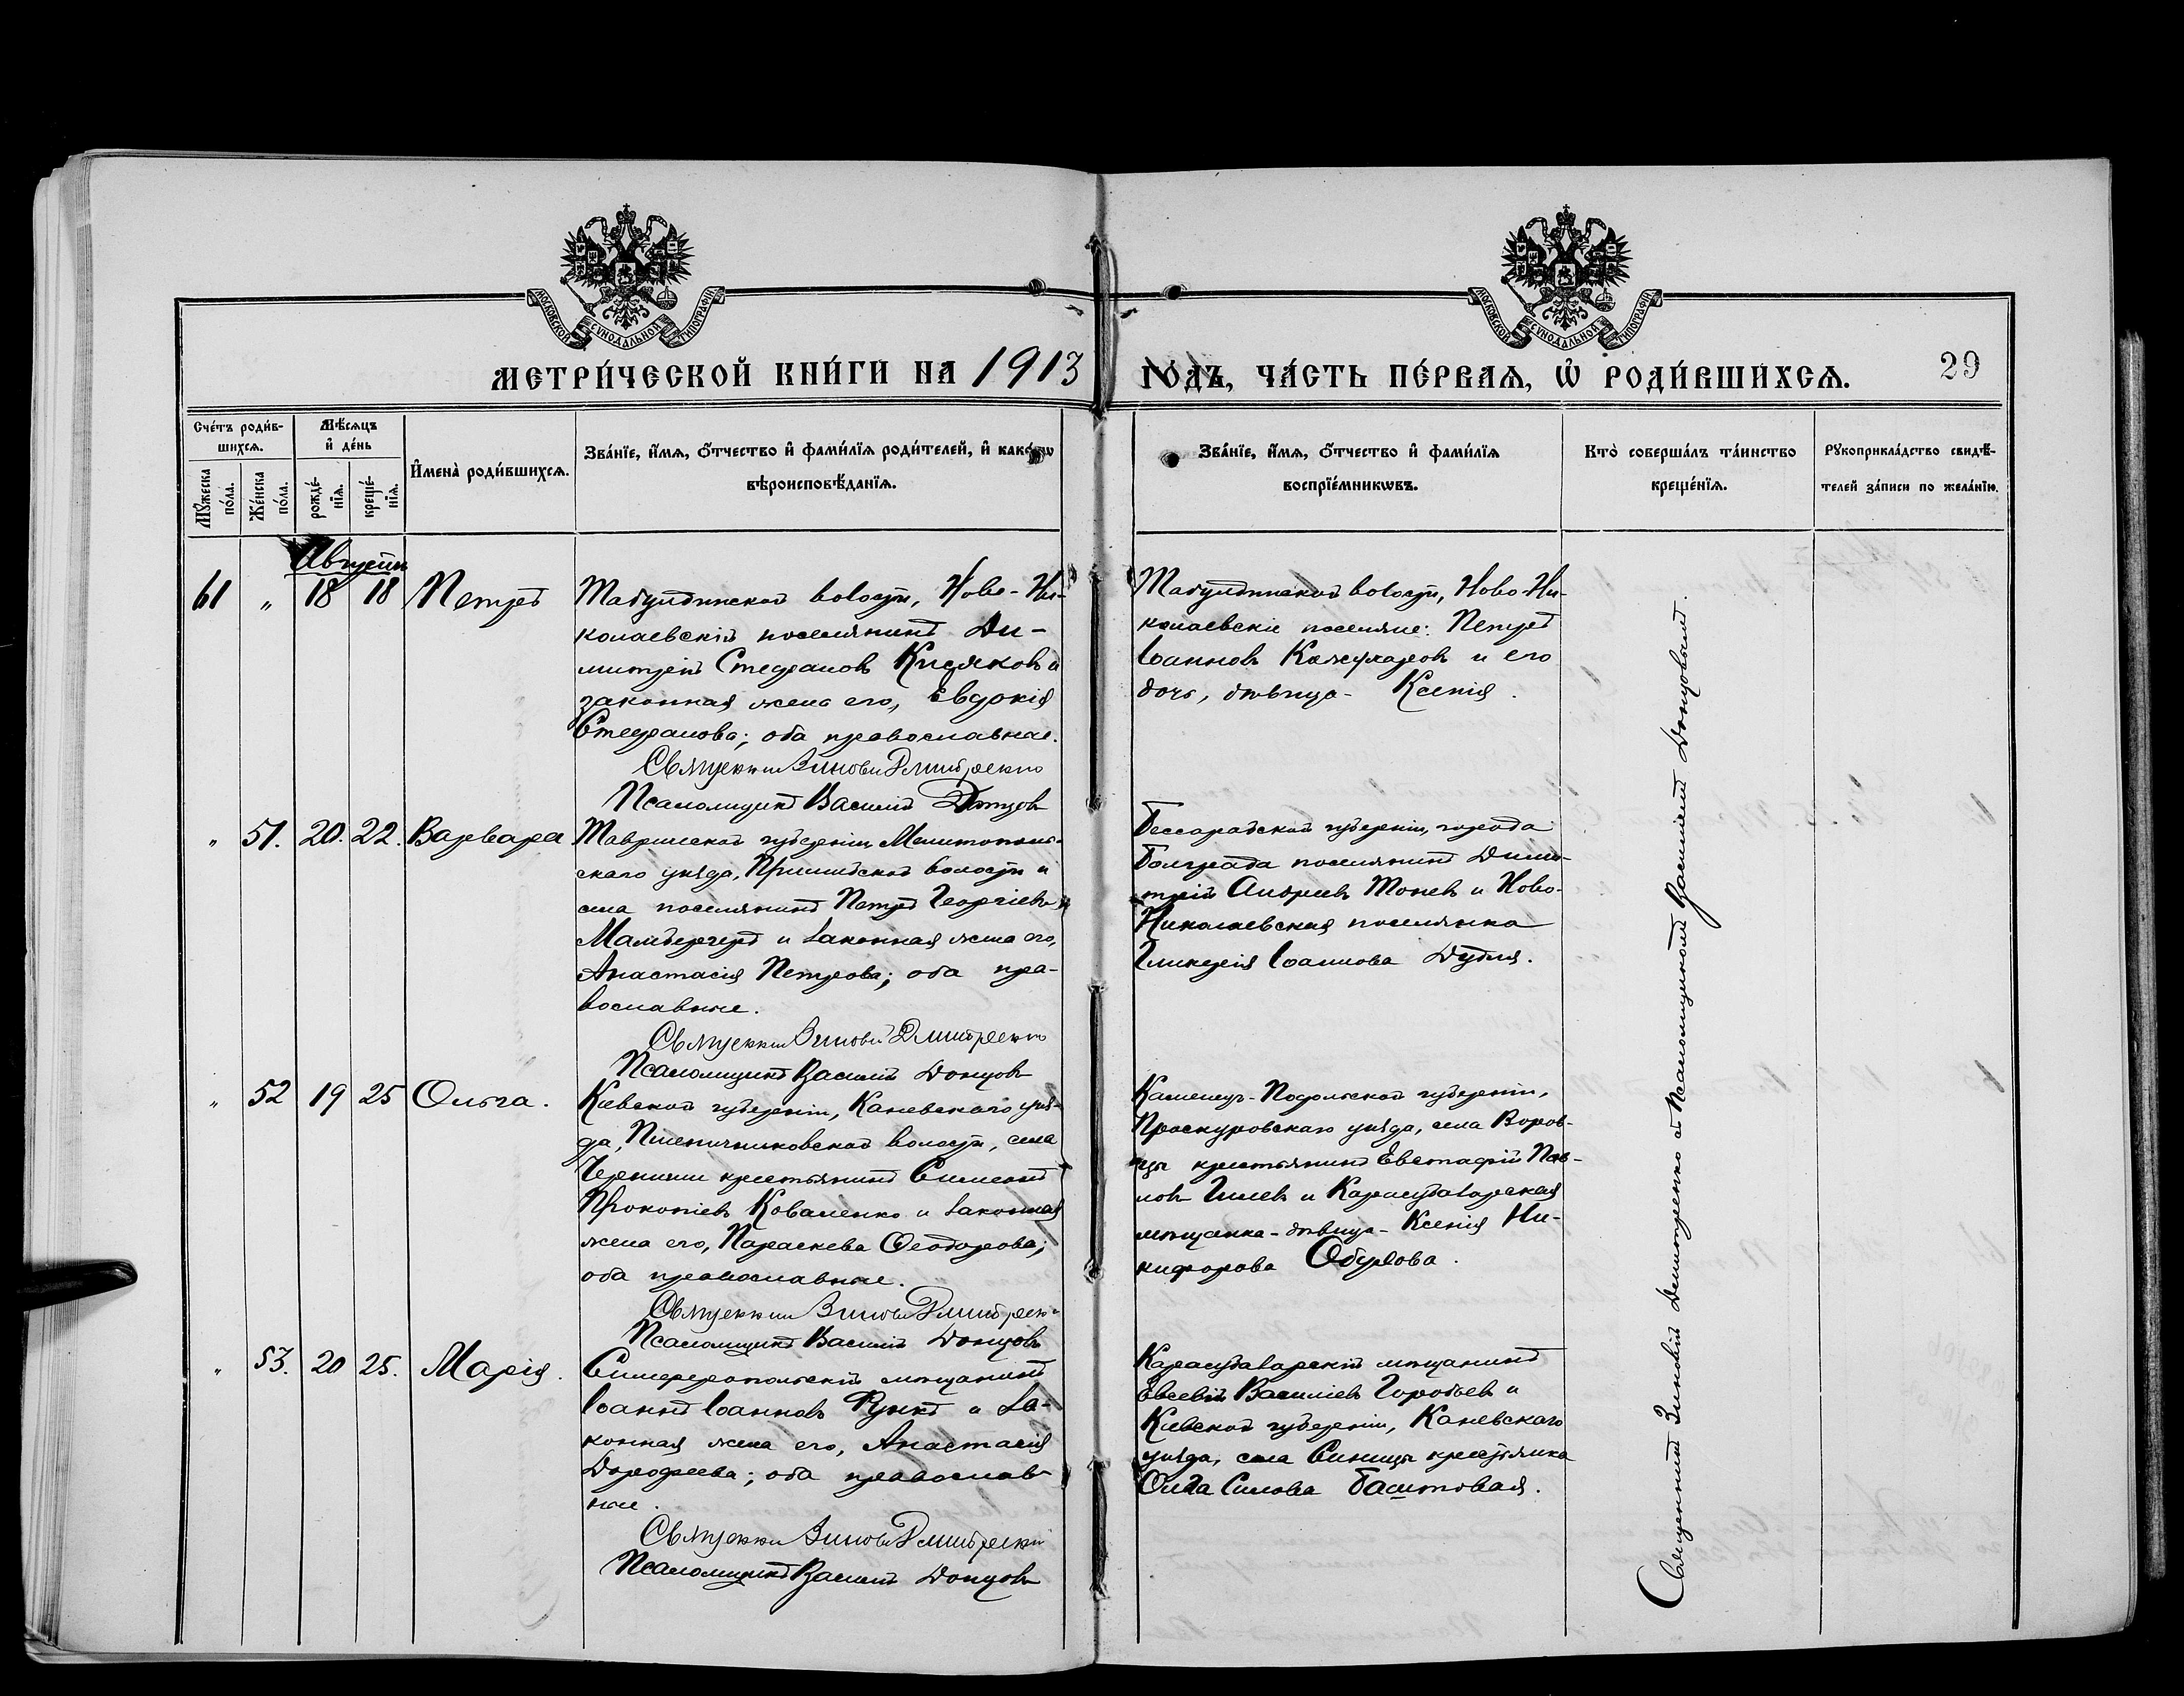 МОСКОВСКОЙ СУНОДАЛЬНОЙ ТИПОГРАФІИ
МОСКОВСКОЙ СУНОДАЛЬНОЙ ТИПОГРАФІИ
МЕТРИ́ЧЕСКОЙ КНИ́ГИ НА 1913 ГО́ДЪ, ЧА́СТЬ ПЕ́РВАѦ, Ѡ҆ РОДИ́ВШИХСѦ. 29
Сче́тъ роди́в-
шихсѧ.
Мѹ́жеска
по́ла.
Же́нска
по́ла.
Мѣ́сѧцъ
и҆ де́нь
рожде́-
нїѧ.
креще́-
нїѧ.
И҆мена̀ роди́вшихсѧ.
Зва́нїе, и҆́мѧ, ѻ҆́тчество и҆ фами́лїѧ роди́телей, и҆ како́гѡ
вѣроисповѣ́данїѧ.
Зва́нїе, и҆́мѧ, ѻ҆́тчество и҆ фами́лїѧ
воспрїе́мникѡвъ.
Кто̀ соверша́лъ та́инство
креще́нїѧ.
Рѹкоприкла́дство свидѣ́-
телей за́писи по жела́нїю.
Августъ
61 " 18 18 Петръ
Табулдинской волости, Ново-Ни-
колаевскій поселянинъ Ди-
митрій Стефановъ Кисяковъ и
законная жена его, Евдокія
Стефанова; оба православные.
Священникъ Зиновій Дмитренко
Псаломщикъ Василій Донцовъ
Табулдинской волости, Ново-Ни-
колаевскіе поселяне: Петръ
Іоанновъ и его
дочь, дѣвица - Ксенія.
" 51. 20. 22. Варвара
Таврической губерніи, Мелитополь-
скаго уѣзда, Пришибской волости и
села поселянинъ Петръ Георгіевъ
Мамбергеръ и законная жена его,
Анастасія Петрова; оба пра-
вославные.
Священникъ Зиновій Дмитренко
Псаломщикъ Василій Донцовъ
Бессарабской губерніи, города
Болграда поселянинъ Дими-
трій Андреевъ Тоневъ и Ново-
Николаевская поселянка
Гликерія Іоаннова Дудля.
" 52 19 25 Ольга.
Кіевской губерніи, Каневскаго уѣз-
да, Пшеничниковской волости, села
Черныши крестьянинъ Симеонъ
Прокопіевъ Коваленко и законная
жена его, Параскева Ѳеодорова;
оба православные.
Священникъ Зиновій Дмитренко
Псаломщикъ Василій Донцовъ
Каменецъ-Подольской губерніи,
Проскуровскаго уѣзда, села Воров-
цы крестьянинъ Евстафій Пав-
ловъ Гилевъ и Карасубазарская
мѣщанка - дѣвица - Ксенія Ни-
кифорова Обухова.
" 53. 20 25. Марія.
Симферопольскій мѣщанинъ
Іоаннъ Іоанновъ Функъ и за-
конная жена его, Анастасія
Дорофеева; оба православ-
ные.
Священникъ Зиновій Дмитренко
Псаломщикъ Василій Донцовъ
Карасубазарскій мѣщанинъ
Евсевій Василіевъ Горобьев и
Кіевской губерніи, Каневскаго
уѣзда, села Синицы крестьянка
Ольга Силова Баштовая.
Священникъ Зиновій Димитренко съ Псаломщикомъ Василіемъ Донцовымъ.